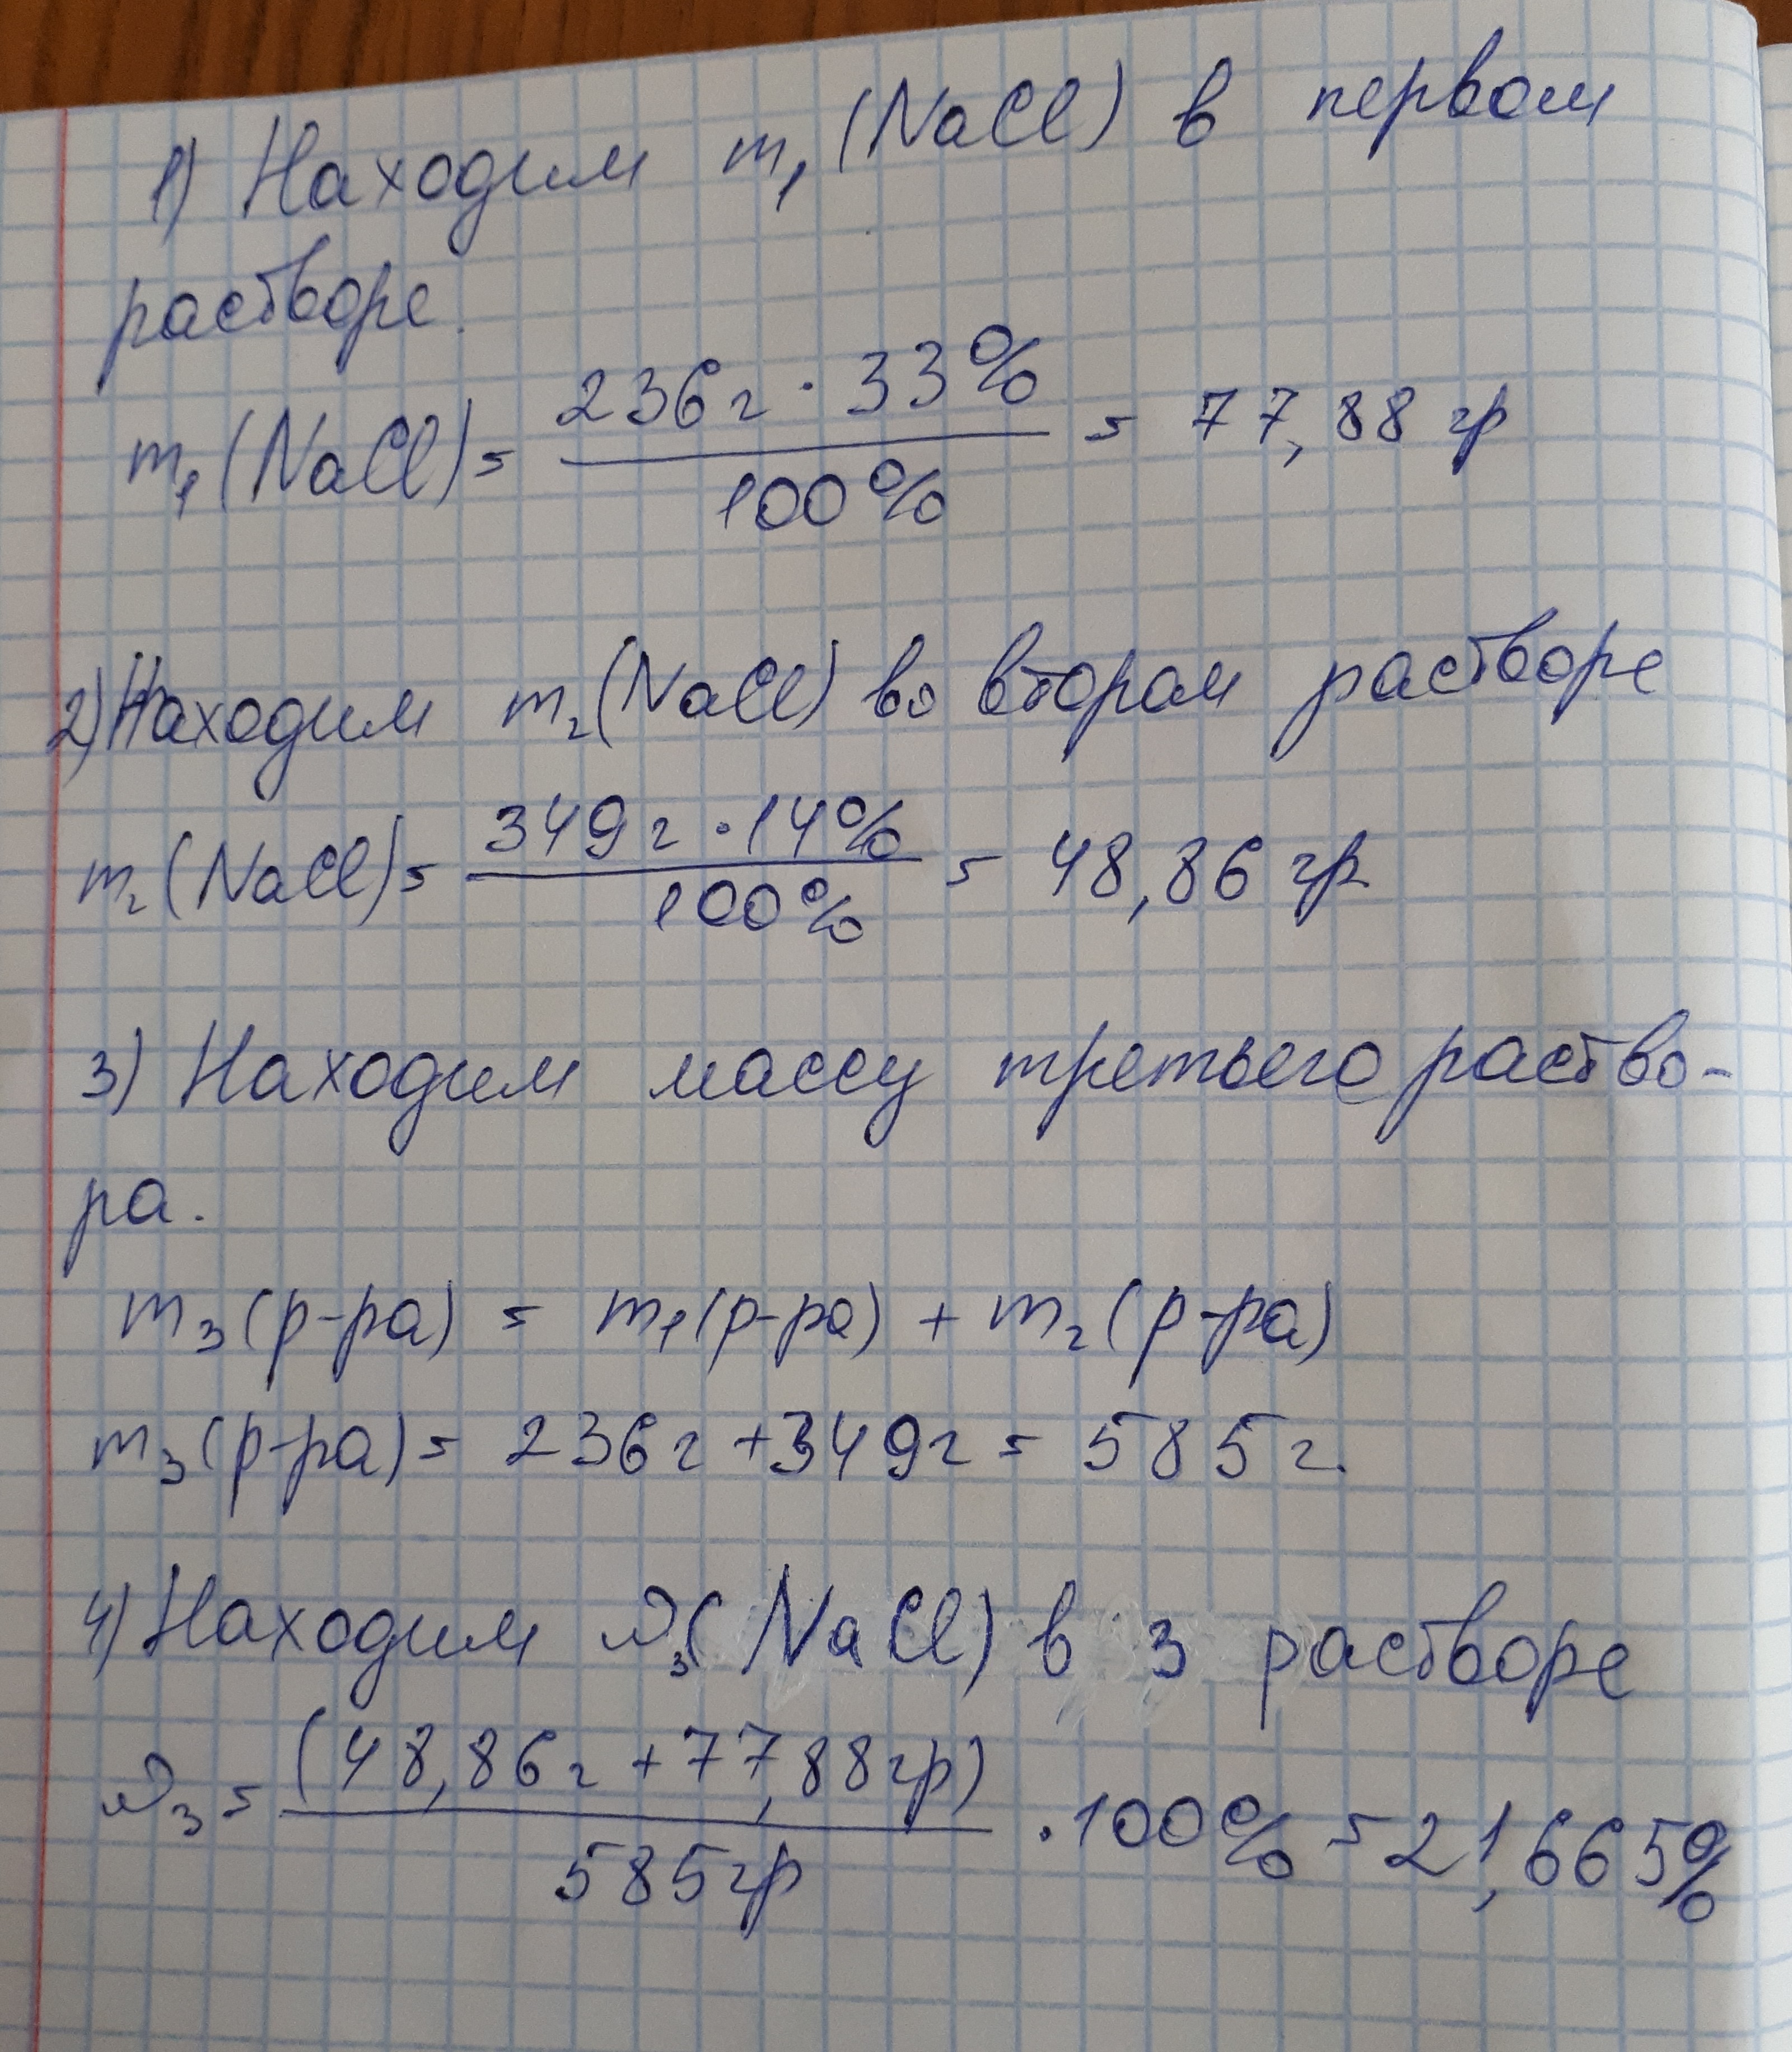 1) Находим m₁(NaCl) в первом
растворе.
m₁(NaCl) = 236г · 33% / 100% = 77,88 гр
2) Находим m₂(NaCl) во втором растворе
m₂(NaCl) = 349г · 14% / 100% = 48,86 гр
3) Находим массу третьего раство-
ра.
m₃(р-ра) = m₁(р-ра) + m₂(р-ра)
m₃(р-ра) = 236г + 349г = 585г.
4) Находим ω₃(NaCl) в 3 растворе
ω₃ = (48,86г + 77,88гр) / 585гр · 100% = 21,665%